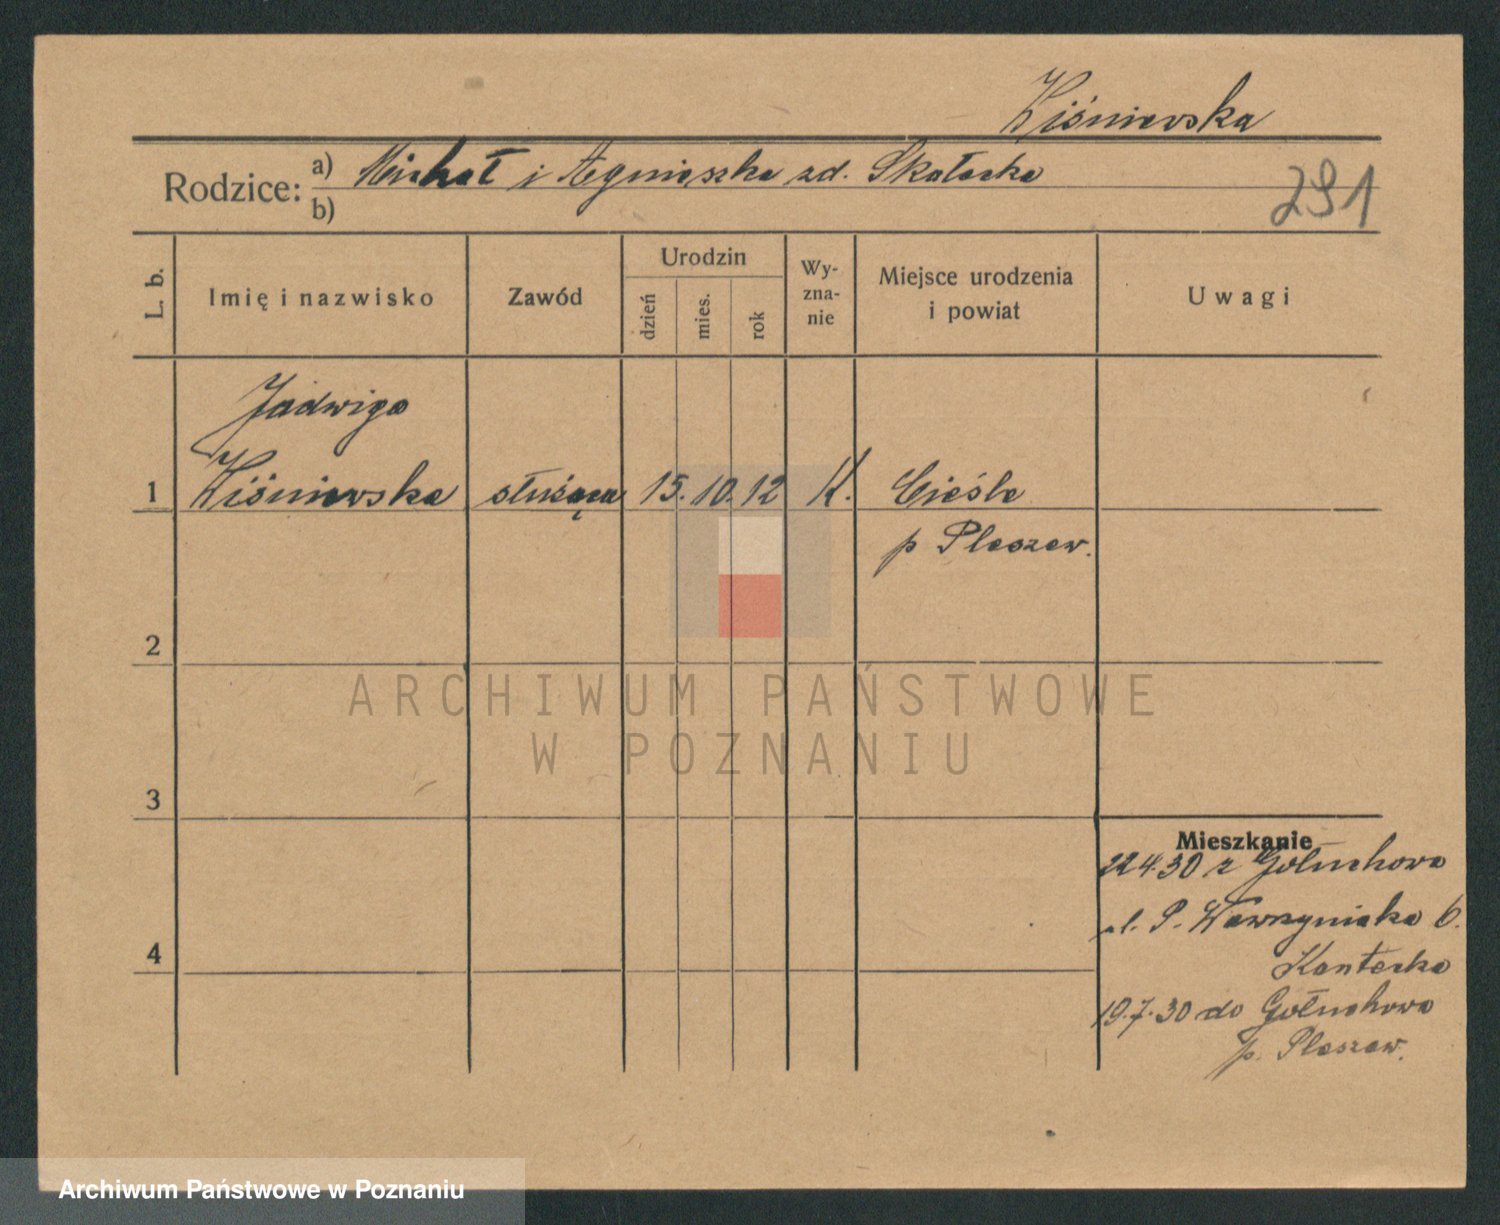 Wiśniewska
Rodzice: a) Michał i Agnieszka zd. Skałecka
b)
291
L. b.
Imię i nazwisko
Zawód
Urodzin
dzień
mies.
rok
Wy-
zna-
nie
Miejsce urodzenia
i powiat
Uwagi
Jadwiga
1 Wiśniewska służąca 15. 10. 12 K. Cieśle
p Pleszew.
2
ARCHIWUM PAŃSTWOWE
W POZNANIU
3
Mieszkanie
22.4.30 z Gołuchowa
ul. P. Wawrzyniaka 6.
4
Kantecka
19.7.30 do Gołuchowa
p. Pleszew.
Archiwum Państwowe w Poznaniu